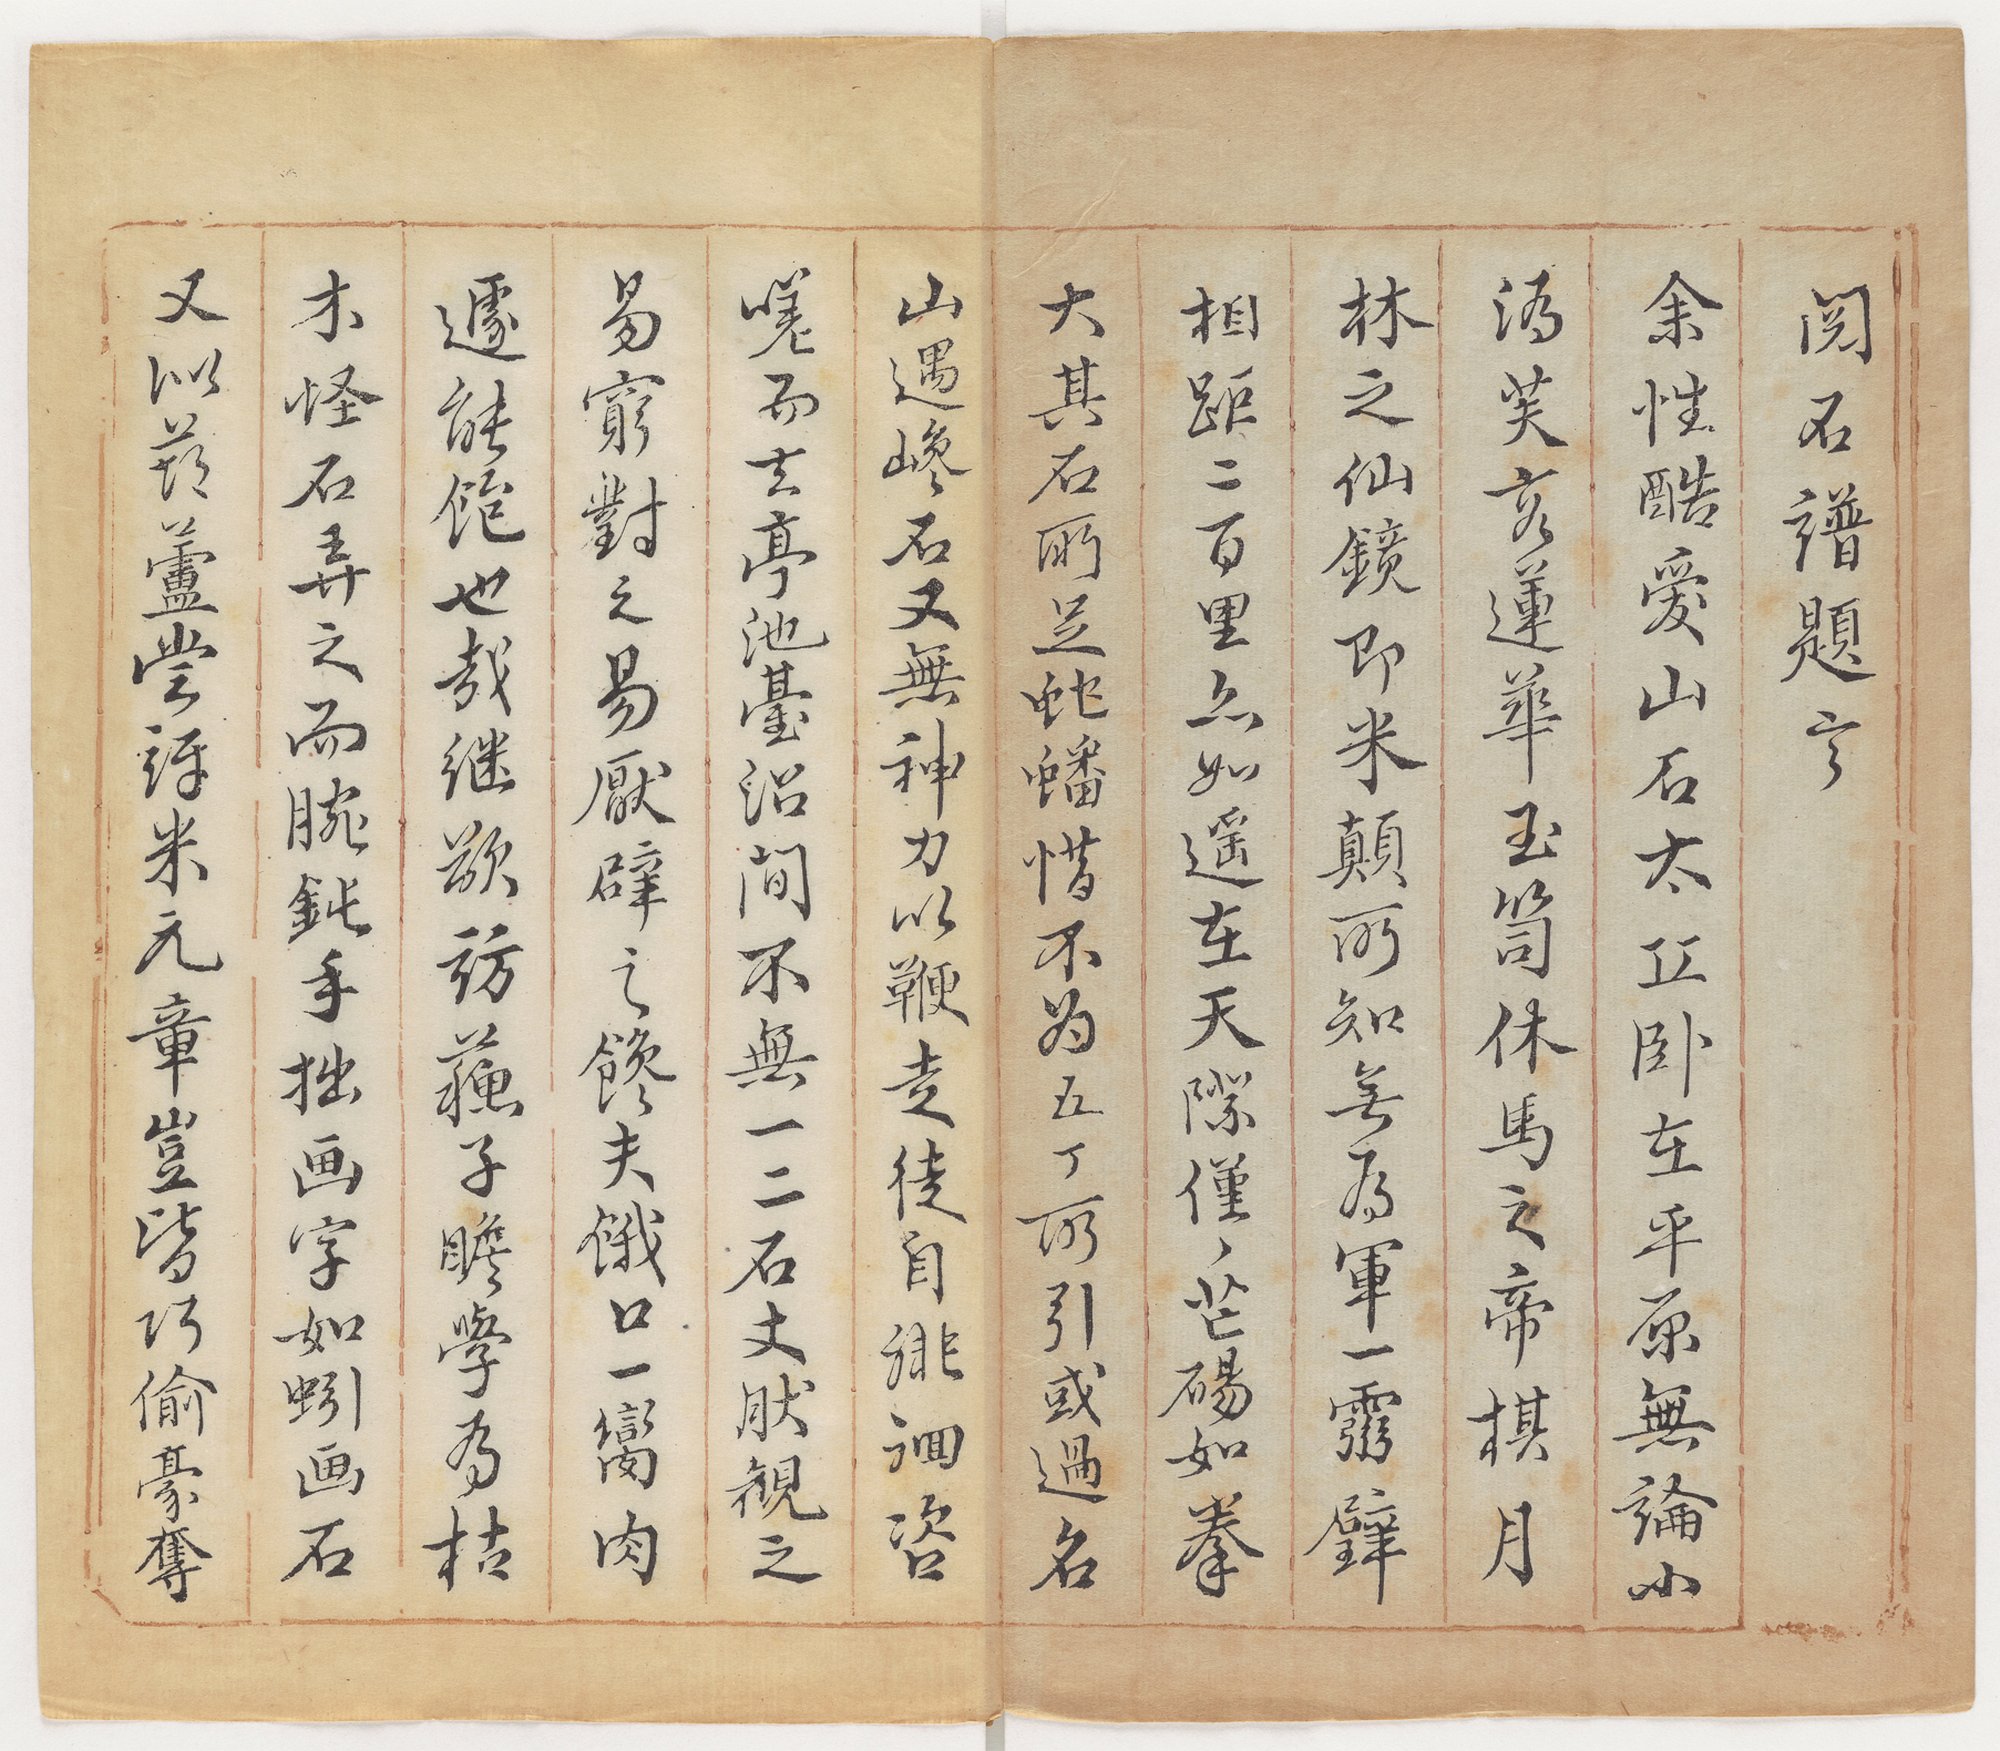 閱石譜題言
余性酷愛山石太丘臥在平原無論小
溈芙蓉蓮華玉笥休馬之帝棋月
林之仙鏡即米顛所知無為軍一靈璧
相距二百里亦如遥在天際僅、芒碭如拳
大其石所足蛇蟠惜不為五丁所引或過名
山遇巉石又無神力以鞭走徒自徘徊咨
嗟而去亭池臺沼間不無一二石丈肰観之
易窮對之易厭辟之饞夫餓口一臠肉
遽能飽也哉継欲訪蘓子瞻學為枯
木怪石弄之而腕鈍手拙画字如蚓画石
又似葫蘆嘗訝米元章豈皆巧偷豪奪